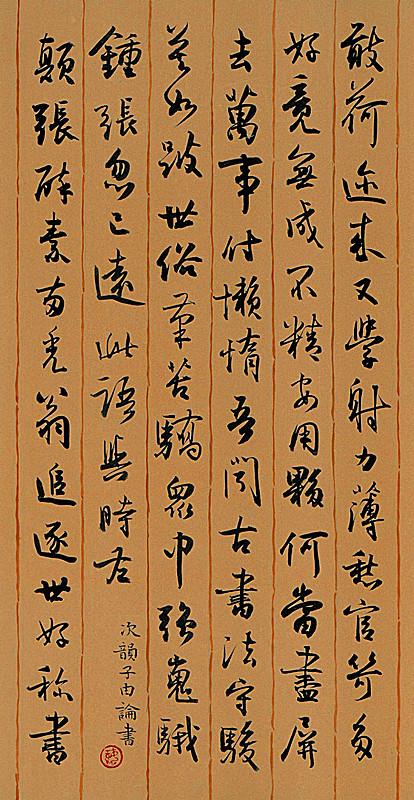 敢荷迩来又學射力薄愁官笴多
好竟無成不精安用夥何當盡屏
去萬事付懶惰吾聞古書法守駿
莫如跛世俗筆苦驕眾中强嵬騀
鍾張忽已遠此語與時左
次韻子由論書
顛張醉素兩禿翁追逐世好称書